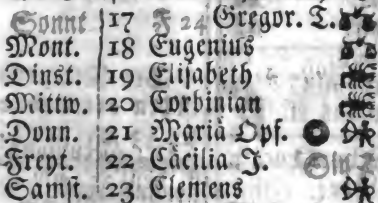 Sonnt 17 F 24 Gregor. T.
Mont. 18 Eugenius
Dinst. 19 Elisabeth
Mittw. 20 Corbinian
Donn. 21 Mariä Opf.
Freyt. 22 Cäcilia J.
Samst. 23 Clemens